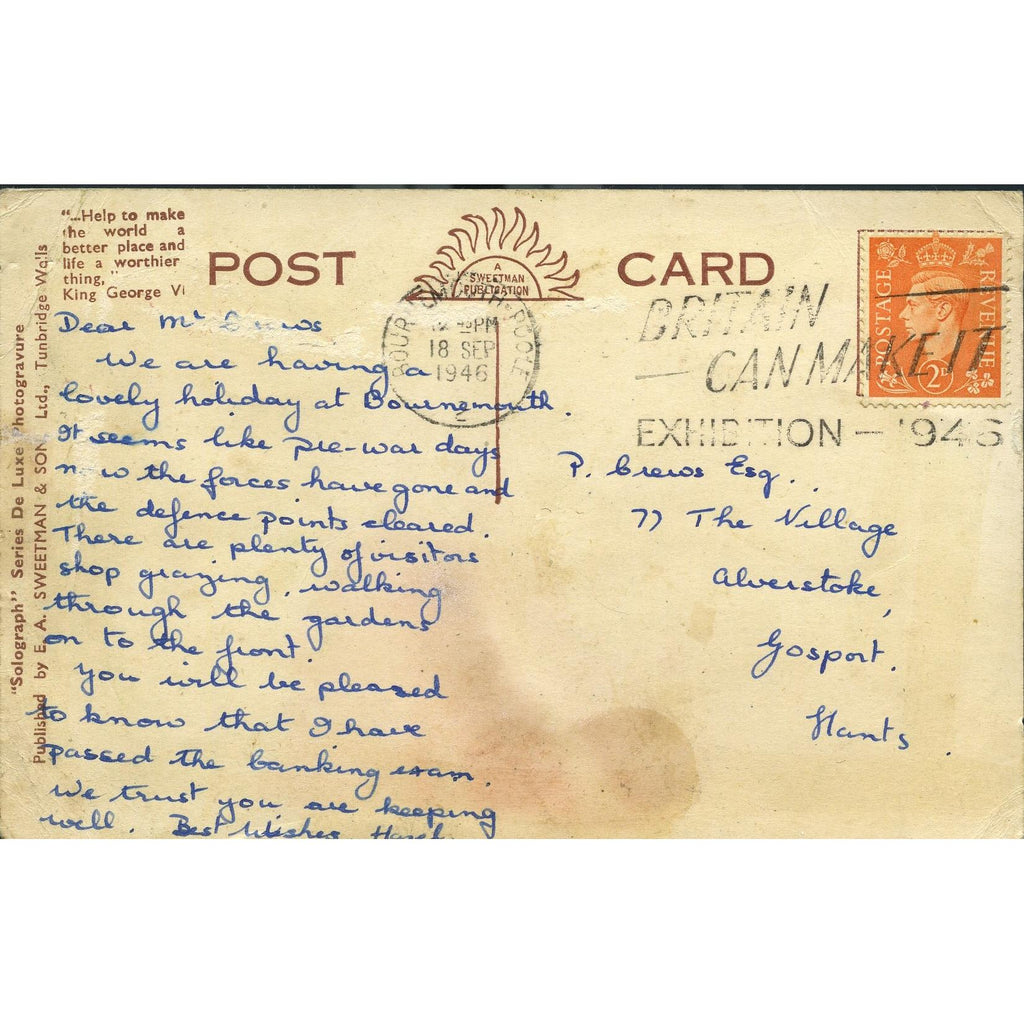 "...Help to make
the world a
better place and
life a worthier
thing,"
King George VI
POST CARD
A
SWEETMAN
PUBLICATION
"Solograph" Series De Luxe Photogravure
Published by E. A. SWEETMAN & SON, Ltd., Tunbridge Wells
BOURNEMOUTH-POOLE
PM
18 SEP
1946
BRITAIN
CAN MAKE IT
EXHIBITION - 1946
POSTAGE REVENUE
2D
Dear Mr Crews
We are having a
lovely holiday at Bournemouth.
It seems like pre-war days
now the forces have gone and
the defence points cleared.
There are plenty of visitors
shop grazing, walking
through the gardens
on to the front.
You will be pleased
to know that I have
passed the banking exam.
We trust you are keeping
well. Best Wishes
P. Crews Esq.
77 The Village
Alverstoke,
Gosport.
Hants.